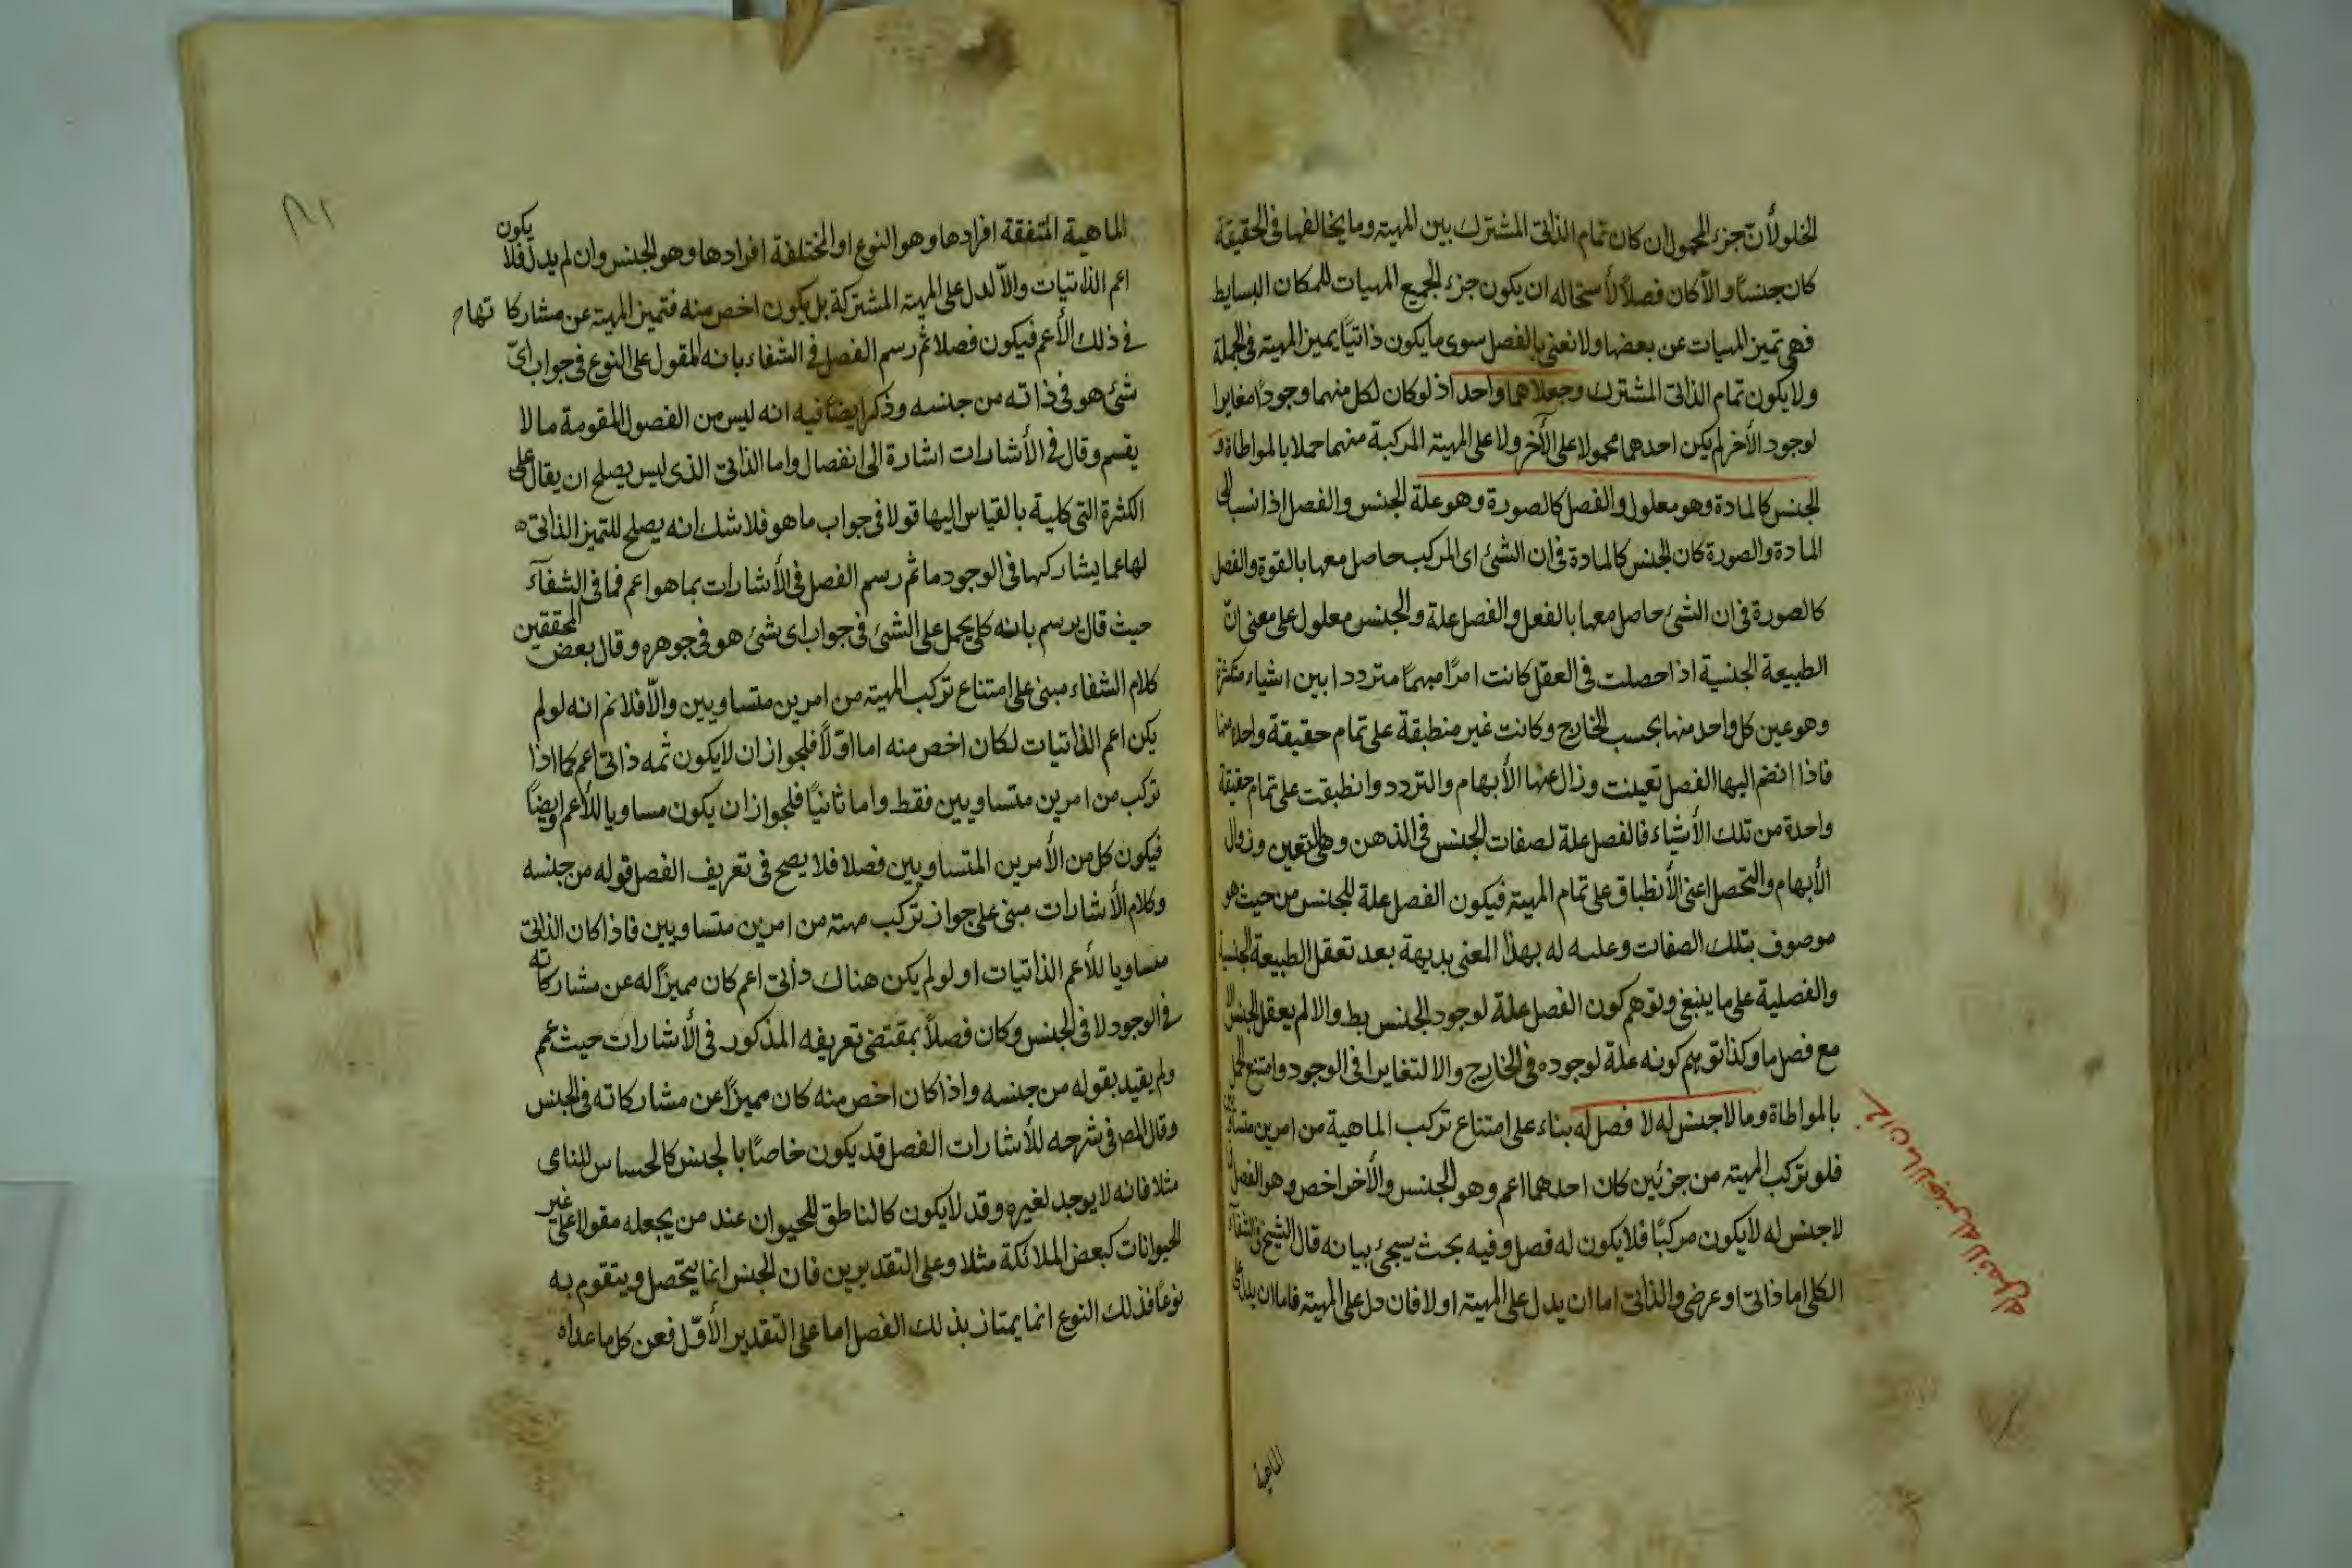 الخلو لأن جزء المحمول ان كان تمام الذاتى المشترك بين المهية وما يخالفها فى الحقيقة
كان جنسا والا كان فصلا لأستحاله ان يكون جزء لجميع المهيات للمكان البسايط
فهى تميز المهيات عن بعضها ولا نعنى بالفصل سوى ما يكون ذاتيا يميز المهية فى الجملة
ولا يكون تمام الذاتى المشترك وجعلاهما واحد اذ لو كان لكل منهما وجودا مغايرا
لوجود الأخر لم يكن احدهما محمولا على الأخر ولا على المهية المركبة منهما حملا بالمواطاة و
الجنس كالمادة وهو معلول والفصل كالصورة وهو علة الجنس والفصل اذا نسبا الى
المادة والصورة كان الجنس كالمادة فى ان الشئ اى المركب حاصل معها بالقوة والفصل
كالصورة فى ان الشئ حاصل معها بالفعل والفصل علة والجنس معلول على معنى ان
الطبيعة الجنسية اذا حصلت فى العقل كانت امرا مبهما مترددا بين اشياء متكثرة
وهو عين كل واحد منها بحسب الخارج وكانت غير منطبقة على تمام حقيقة واحد منها
فاذا انضم اليها الفصل تعينت وزال عنها الأبهام والتردد وانطبقت على تمام حقيقة
واحدة من تلك الأشياء فالفصل علة لصفات الجنس فى الذهن وهى التعين وزوال
الأبهام والتحصل اعنى الأنطباق على تمام المهية فيكون الفصل علة للجنس من حيث هو
موصوف بتلك الصفات وعليه له بهذا المعنى بديهة بعد تعقل الطبيعة الجنسية
والفصلية على ما ينبغى وتوهم كون الفصل علة لوجود الجنس بط والا لم يعقل الجنس الا
مع فصل ما وكذا توهم كونه علة لوجوده فى الخارج والا لتغايرا فى الوجود وامتنع الحمل
بالمواطاة وما لا جنس له لا فصل له بناء على امتناع تركب الماهية من امرين متساويين
فلو تركب المهية من جزئين كان احدهما اعم وهو الجنس والأخر اخص وهو الفصل
لا جنس له لا يكون مركبا فلا يكون له فصل وفيه بحث يسجئ بيانه قال الشيخ فى الشفآء
الكلى اما ذاتى او عرضى والذاتى اما ان يدل على المهية او لا فان دل على المهية فاما ان يدل على
ما لا جنس له لا فصل له
الماهية
الماهية المتفقة افرادها وهو النوع او المختلفة افرادها وهو الجنس وان لم يدل فلا يكون
اعم الذاتيات والا لدل على المهية المشتركة بل يكون اخص منه فتميز المهية عن مشاركاتها
فى ذلك الأعم فيكون فصلا ثم رسم الفصل فى الشفاء بانه المقول على النوع فى جواب اى
شئ هو فى ذاته من جنسه وذكر ايضا فيه انه ليس من الفصول المقومة ما لا
يقسم وقال فى الأشارات اشارة الى انفصال واما الذاتى الذى ليس يصلح ان يقال على
الكثرة التى كلية بالقياس اليها قولا فى جواب ما هو فلا شك انه يصلح للتميز الذاتى
لها عما يشاركها فى الوجود ما ثم رسم الفصل فى الأشارات بما هو اعم فما فى الشفآء
حيث قال يرسم بانه كلى يحمل على الشئ فى جواب اى شئ هو فى جوهره وقال بعض المحققين
كلام الشفاء مبنى على امتناع تركب المهية من امرين متساويين والا فلا نم انه لو لم
يكن اعم الذاتيات لكان اخص منه اما اولا فلجواز ان لا يكون ثمه ذاتى اعم كما اذا
تركب من امرين متساويين فقط واما ثانيا فلجواز ان يكون مساويا للأعم ايضا
فيكون كل من الأمرين المتساويين فصلا فلا يصح فى تعريف الفصل قوله من جنسه
وكلام الأشارات مبنى على جواز تركب مهية من امرين متساويين فاذا كان الذاتى
مساويا للأعم الذاتيات او لو لم يكن هناك ذاتى اعم كان مميزا له عن مشاركاته
فى الوجود لا فى الجنس وكان فصلا بمقتضى تعريفه المذكور فى الأشارات حيث عم
ولم يقيد بقوله من جنسه واذا كان اخص منه كان مميزا عن مشاركاته فى الجنس
وقال المص فى شرحه للأشارات الفصل قد يكون خاصا بالجنس كالحساس للنامى
مثلا فانه لا يوجد لغيره وقد لا يكون كالناطق للحيوان عند من يجعله مقولا على غير
الحيوانات كبعض الملائكة مثلا وعلى التقديرين فان الجنس انما يتحصل ويتقوم به
نوعا فذلك النوع انما يمتاز بذلك الفصل اما على التقدير الأول فعن كل ما عداه